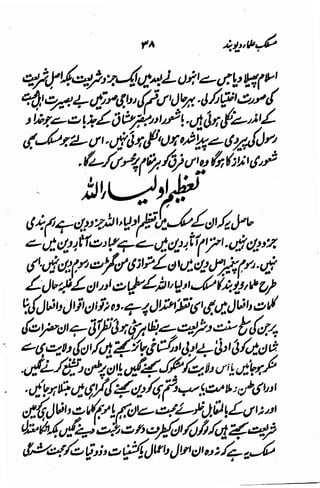 مسلک علماء دیوبند ۳۸
اسلام پھیلا دیا جس سے انہوں نے بعد میں ایک جزو شریعت بلکہ اصل شریعت
کی صورت اختیار کر لی۔ بہرحال اس قسم کی رواجی صورتیں بے بصیرت اہل محبت
کے اندر سے نکلی ہوئی ہیں۔ باشعور اور مبصر عشاق کے جذبات سے جو خدا و
رسول کی پیروی سے پیدا شدہ ہوں، نکلی ہوئی نہیں۔ اس لئے جو مسلک بھی
شعوری انداز کا ہوگا وہ اس فرق کو ہر مقام پر محسوس کرے گا۔
تعظیم اولیاء اللہ
حاصل یہ کہ ان کے مسلک میں تعظیم اولیاء اللہ جزو دین ہے رسم بندی
جزو دین نہیں۔ احترام آثار دین میں سے ہے عبادت آثار دین میں سے
نہیں۔ رسوم پیغمبر اصل دین میں ان کے متوازی من گھڑت رسوم دین نہیں، اسی
طرح علماء دیوبند کا مسلک اولیاء اللہ کے شطحیات اور ان کے غلبۂ حال کے
کلمات و افعال میں بھی اسی نقطۂ اعتدال پر ہے۔ وہ نہ تو ان اقوال و افعال کی بنا
پر جن کی سطح سنت و شریعت سے بظاہر ہٹی ہوئی نظر آتی ہے ان حضرات کی
شان میں کوئی ادنیٰ بے ادبی اور گستاخی جائز سمجھتے ہیں کہ ان کی ولایت ہی سے
منکر ہو جائیں یا اس ولایت کو مشکوک سمجھنے لگیں یا ان پر طعن و تشنیع کرنے لگیں۔
اور اسی طعن و ملامت یا سب و شتم ہی کو دین سمجھنے کی گمراہی میں مبتلا ہو جائیں۔
اور نہ اس کے بالمقابل غلوئے محبت سے ان مبہم یا موہم کلمات و افعال ہی کو عین
شریعت سمجھتے ہیں کہ لوگوں کو ان کی طرف دعوت دینے لگیں بلکہ
مسلک یہ ہے کہ نہ وہ ان احوال و اعمال یا کشفیات و ذوقیات کو حجت شرعی